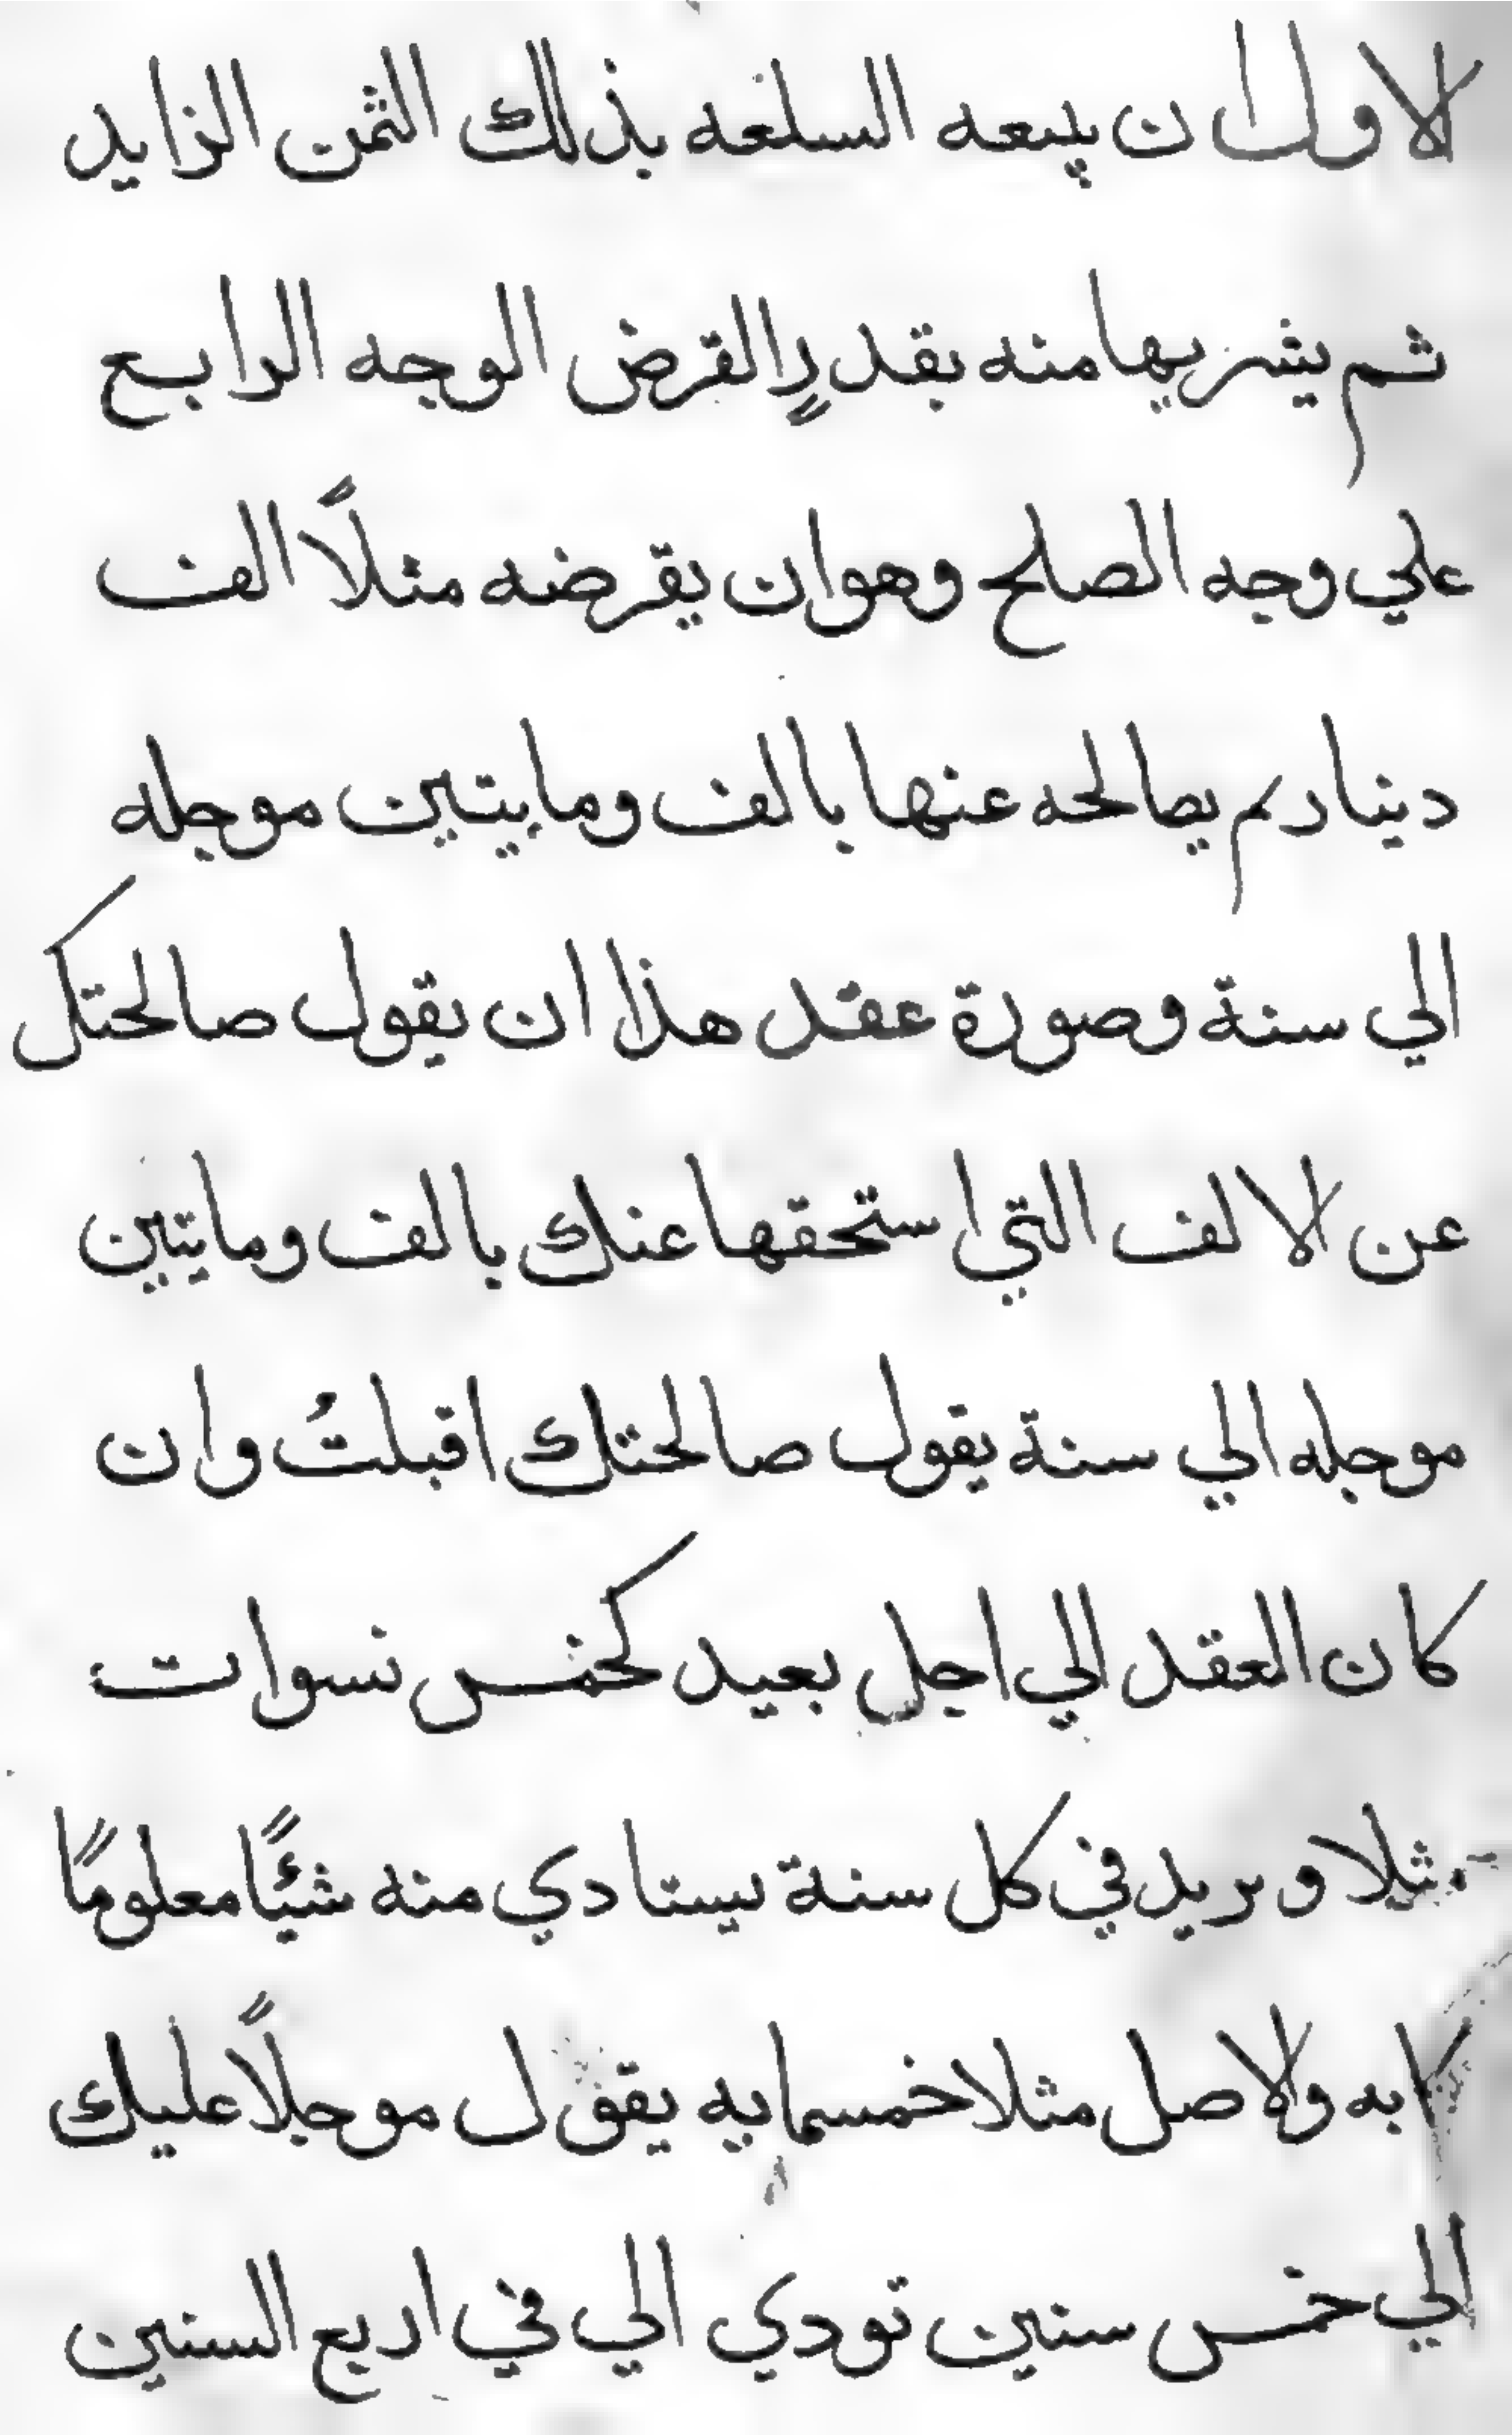 الاول ان يبيعه السلعه بذلك الثمن الزايد
ثم يشريها منه بقدرٍ القرض الوجه الرابع
علي وجه الصلح وهو ان يقرضه مثلاً الف
دينار م يصالحه عنها بالف ومايتين موجله
الي سنة وصورة عقد هذا ان يقول صالحتك
عن الالف التي استحقها عنك بالف ومايتين
موجله الي سنة يقول صالحتك اقبلتُ وان
كان العقد الي اجل بعيد كخمس نسوات
مثلا ويريد في كل سنة يستادي منه شئًا معلومًا
كابه والاصل مثلا خمسمايه يقول موجلاً عليك
الي خمس سنين تودي الي في اربع السنين